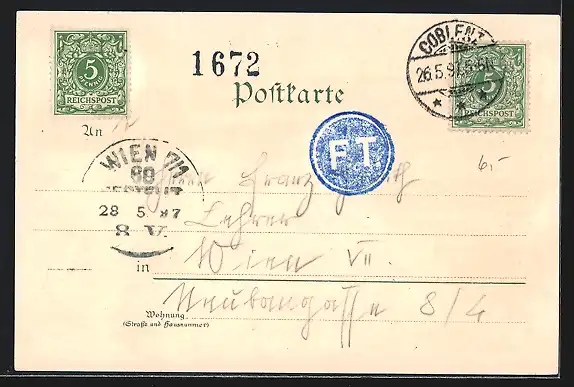 1672
Postkarte
5
PFENNIG
REICHSPOST
COBLENZ
26.5.97
5
REICHSPOST
An
F T
WIEN 7/1
80
BESTELLT
28 5 97
8 V.
Herrn Franz
Lehrer
Wien VII.
in
Neubaugasse 8/4
Wohnung
(Straße und Hausnummer)